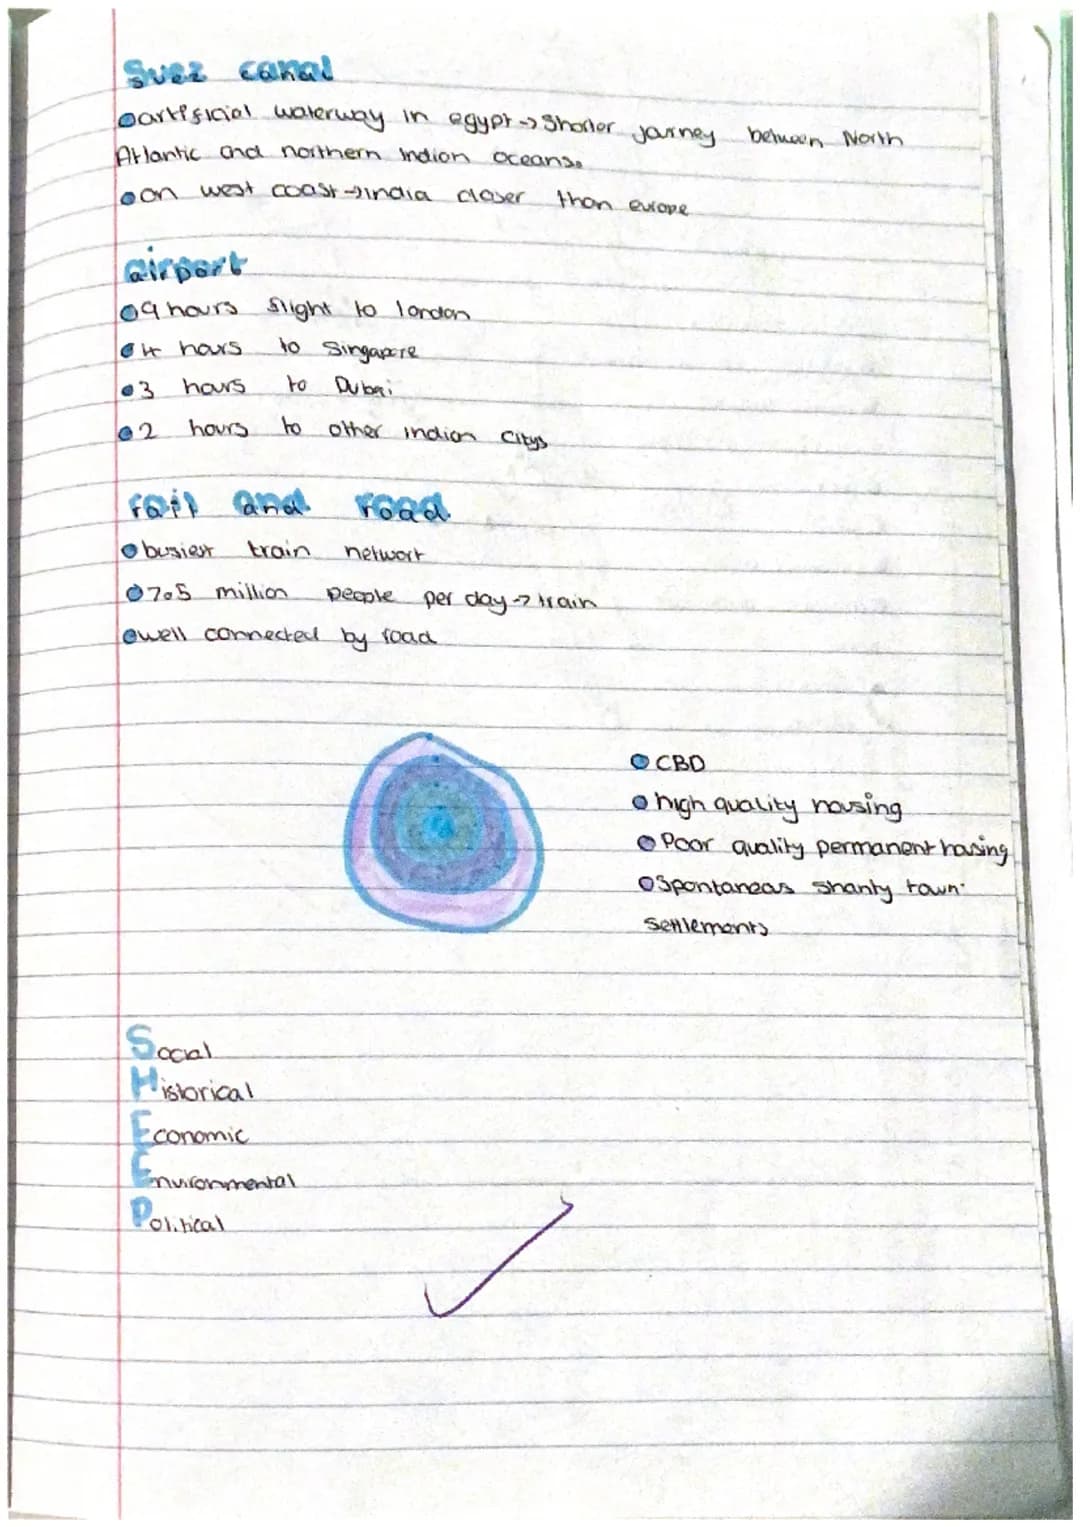 Suez canal
artificial waterway in egypt → Shorter journey between North
Atlantic and northern indian oceans.
on west coast → india closer than europe
airport
9 hours flight to london
4 hours to Singapore
3 hours to Dubai
2 hours to other indian Citys
rail and road
busiest train network
7.5 million people per day → train
well connected by road
CBD
high quality housing
Poor quality permanent housing
Spontaneous shanty town
settlements
Social
Historical
Economic
Environmental
Political